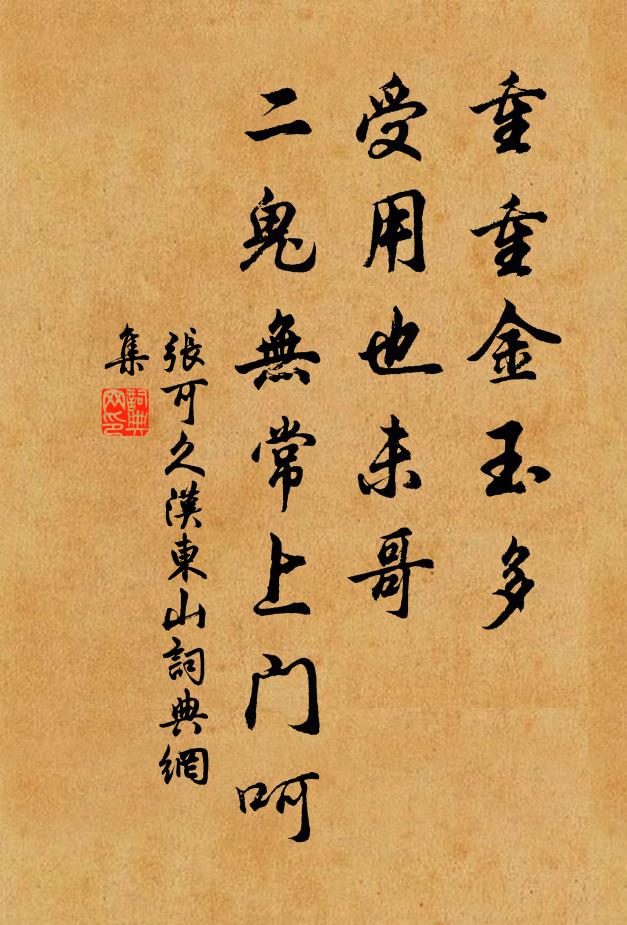 重重金玉多
受用也未哥
二鬼無常上门呵
張可久漢東山詞典網
集
詞典網印